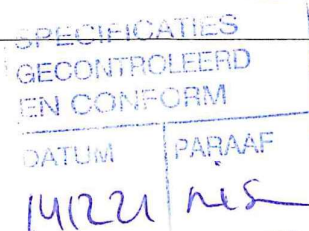 SPECIFICATIES
GECONTROLEERD
EN CONFORM
DATUM PARAAF
141221